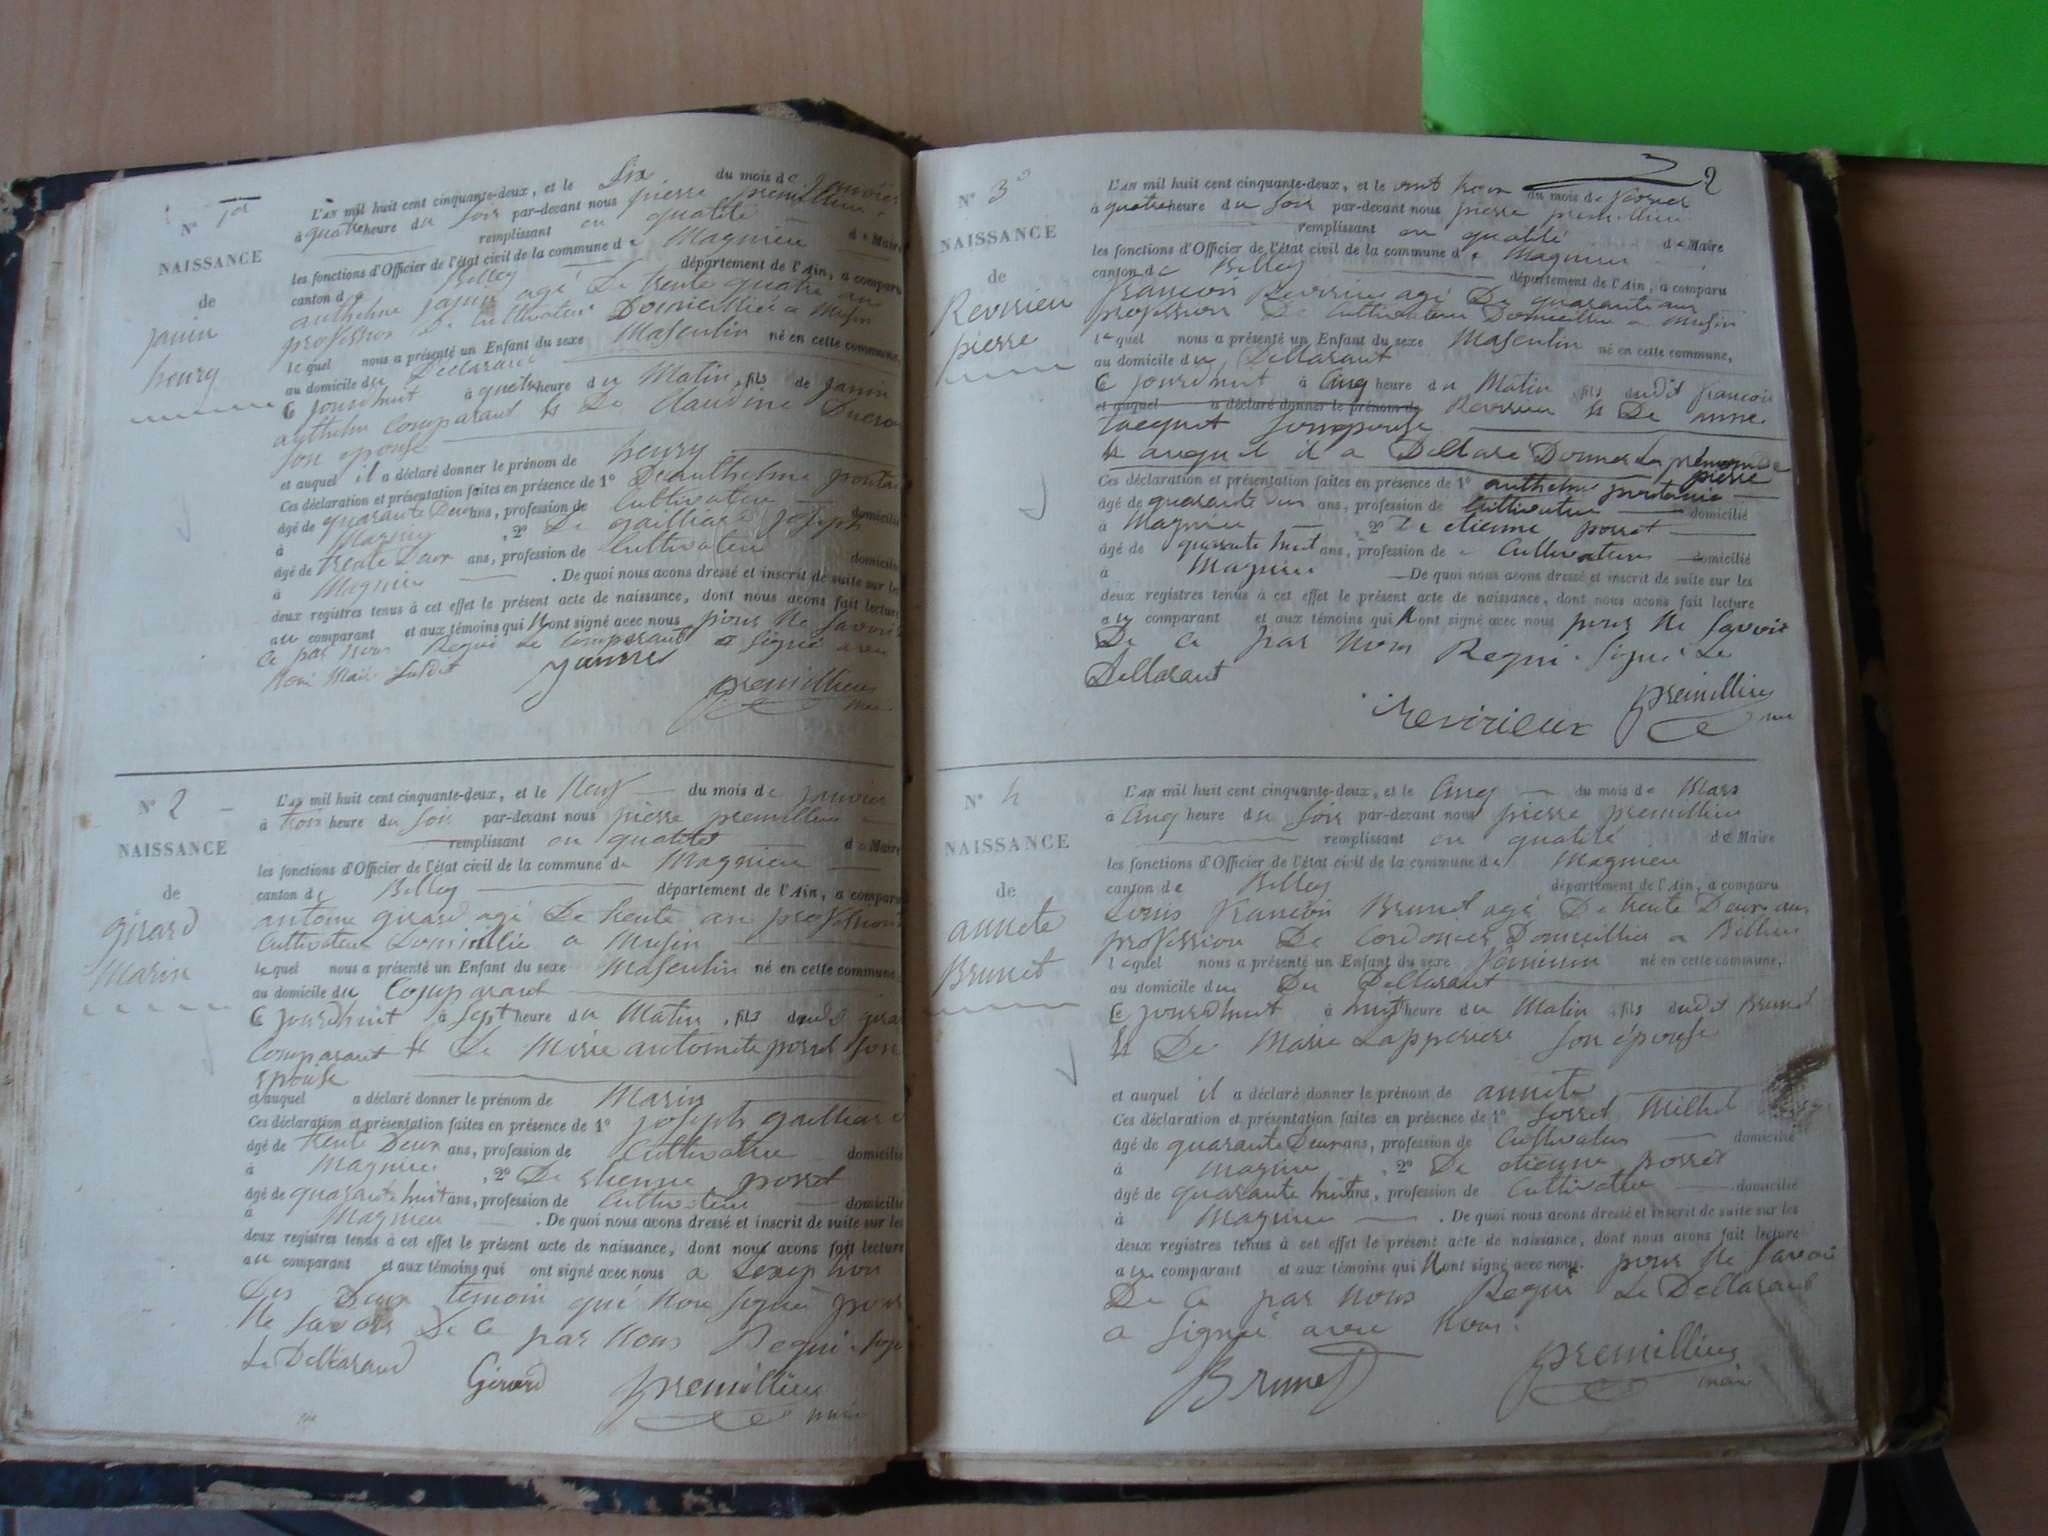 N° 1er
NAISSANCE
de
janin
henry
L'AN mil huit cent cinquante-deux, et le Six du mois de janvier
à quatre heure du Soir par-devant nous pierre premillieu
remplissant en qualité de Maire
les fonctions d'Officier de l'état civil de la commune de Magnieu
canton de Belley département de l'Ain, a comparu
anthelme janin agé De trente quatre an
profession De Cultivateur Domicillié a Musin
lequel nous a présenté un Enfant du sexe Masculin né en cette commune,
au domicile du Declarant
Ce jourdhuit à quatre heure du Matin, fils de janin
anthelme Comparant et De Claudine
Son epouse
et auquel il a déclaré donner le prénom de henry
Ces déclaration et présentation faites en présence de 1° De anthelme
âgé de quarante Deux ans, profession de Cultivateur domicilié
à Magnieu , 2° De gailliard joseph
âgé de trente Deux ans, profession de Cultivateur domicilié
à Magnieu . De quoi nous avons dressé et inscrit de suite sur les
deux registres tenus à cet effet le présent acte de naissance, dont nous avons fait lecture
au comparant et aux témoins qui Nont signé avec nous pour Ne Savoir
Ce par nous Requi Le Comparant a Signé avec
Nous Maire Susdit
premillieu
N° 2
NAISSANCE
de
girard
Marin
L'AN mil huit cent cinquante-deux, et le Neuf du mois de janvier
à trois heure du Soir par-devant nous pierre premillieu
remplissant en qualité de Maire
les fonctions d'Officier de l'état civil de la commune de Magnieu
canton de Belley département de l'Ain, a comparu
antoine girard agé De trente an profession
Cultivateur Domicillié a Musin
lequel nous a présenté un Enfant du sexe Masculin né en cette commune,
au domicile du Comparant
Ce jourdhuit à Sept heure du Matin, fils dudit
Comparant et De antoinete porret Son
epouse
et auquel a déclaré donner le prénom de Marin
Ces déclaration et présentation faites en présence de 1° joseph gailliard
âgé de trente Deux ans, profession de Cultivateur domicilié
à Magnieu , 2° De etienne porret
âgé de quarante huit ans, profession de Cultivateur domicilié
à Magnieu . De quoi nous avons dressé et inscrit de suite sur les
deux registres tenus à cet effet le présent acte de naissance, dont nous avons fait lecture
au comparant et aux témoins qui ont signé avec nous a Lexeption
Des Deux temoin qui Non Signé pour
Ne Savoir De Ce par Nous Requi
Le Declarand
Girard premillieu maire
2
N° 3e
NAISSANCE
de
Revirieu
pierre
L'AN mil huit cent cinquante-deux, et le vint trois du mois de
à quatre heure du Soir par-devant nous pierre premillieu
remplissant en qualité de Maire
les fonctions d'Officier de l'état civil de la commune de Magnieu
canton de Belley département de l'Ain, a comparu
françois agé De quarante ans
profession De Cultivateur Domicillié a Musin
lequel nous a présenté un Enfant du sexe Masculin né en cette commune,
au domicile du Declarant
Ce jourdhuit à Cinq heure du Matin, fils dudit françois
et auquel a déclaré donner le prénom de Revirieu et De anne
jacquet Son epouse
et auquel il a Declaré Donner Le prénom De
pierre
Ces déclaration et présentation faites en présence de 1° anthelme
âgé de quarante ans, profession de Cultivateur domicilié
à Magnieu , 2° De etienne porret
âgé de quarante huit ans, profession de Cultivateur domicilié
à Magnieu De quoi nous avons dressé et inscrit de suite sur les
deux registres tenus à cet effet le présent acte de naissance, dont nous avons fait lecture
au comparant et aux témoins qui Nont signé avec nous pour Ne Savoir
De Ce par Nous Requi. Signé Le
Declarant
revirieux premillieu
N° 4
NAISSANCE
de
annete
Brunet
L'AN mil huit cent cinquante-deux, et le Cinq du mois de Mars
à Cinq heure du Soir par-devant nous pierre premillieu
remplissant en qualité de Maire
les fonctions d'Officier de l'état civil de la commune de Magnieu
canton de Belley département de l'Ain, a comparu
Louis françois Brunet agé De trente Deux ans
profession De Cordonier Domicillier a
lequel nous a présenté un Enfant du sexe feminin né en cette commune,
au domicile du Du Declarant
Ce jourdhuit à huit heure du Matin, fils dudit Brunet
et De Marie Son épouse
et auquel il a déclaré donner le prénom de annete
Ces déclaration et présentation faites en présence de 1°
âgé de quarante Deux ans, profession de Cultivateur domicilié
à Magnieu , 2° De etienne porret
âgé de quarante huit ans, profession de Cultivateur domicilié
à Magnieu . De quoi nous avons dressé et inscrit de suite sur les
deux registres tenus à cet effet le présent acte de naissance, dont nous avons fait lecture
au comparant et aux témoins qui Nont signé avec nous. pour Ne Savoir
De Ce par Nous Requi Le Declarant
a Signé avec Nous.
Brunet premillieu
maire